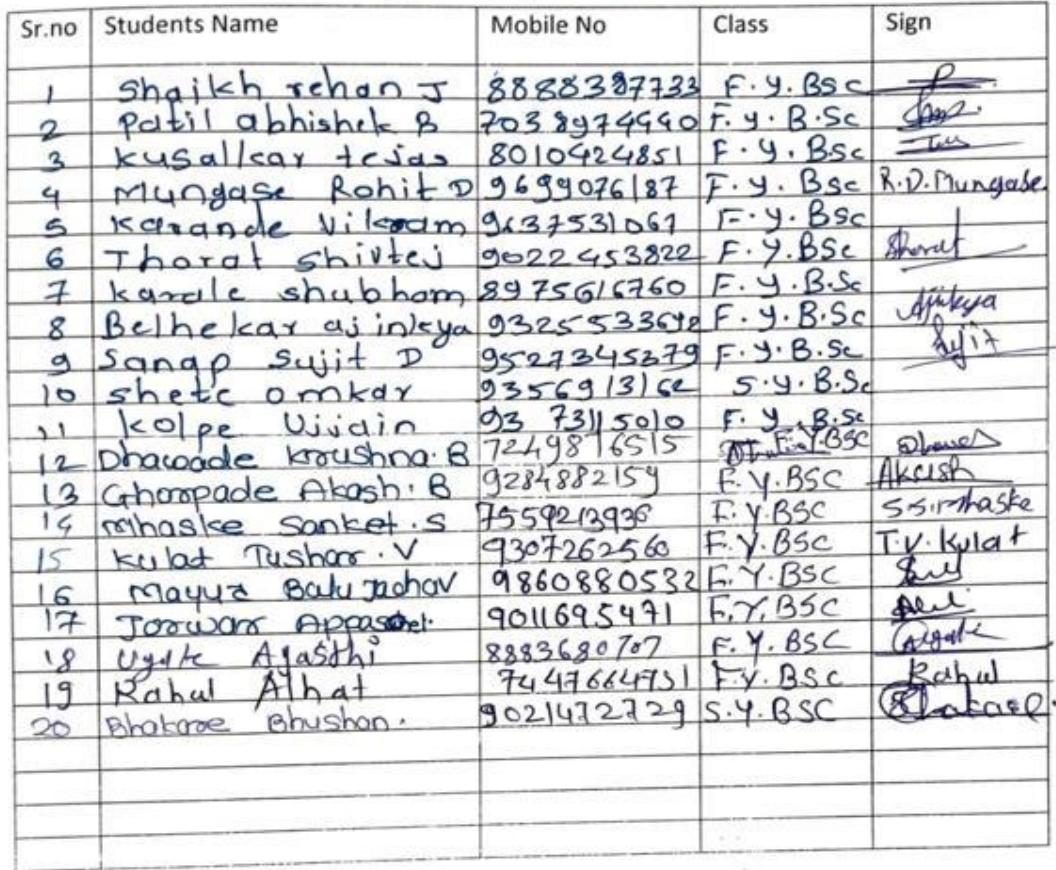 Sr.no Students Name Mobile No Class Sign
1 Shaikh rehan J 8888387733 F.Y.BSc
2 Patil abhishek B 7038974440 F.y.B.Sc
3 kusalkar tejas 8010424851 F.Y.BSc
4 Mungase Rohit D 9699076187 F.Y.BSc R.D.Mungase.
5 Karande Vikram 9637531061 F.Y.BSc
6 Thorat Shivtej 9022453822 F.Y.BSc Thorat
7 karale shubham 8975616760 F.Y.B.Sc
8 Belhekar ajinkya 9325533692 F.Y.B.Sc Ajinkya
9 Sanap Sujit D 9527345379 F.Y.B.Sc Sujit
10 shete omkar 9356913162 S.Y.B.Sc
11 kolpe 93 73115010 F.Y.B.Sc
12 Dhawade krushna.B 7249816515 F.Y.BSC
13 Ghorpade Akash.B 9284882159 F.Y.BSC Akash
14 mhaske Sanket.S 7559213936 F.Y.BSC S.S.mhaske
15 kulat Tushar.V 9307262560 F.Y.BSC T.V.kulat
16 Mayur Balu Jadhav 9860880532 F.Y.BSC
17 Jorwar 9011695471 F.Y.BSC
18 Ugale Agasthi 8883680707 F.Y.BSC
19 Rahul Alhat 7447664751 F.Y.BSC Rahul
20 Bhakare Bhushan. 9021472729 S.Y.BSC Bhakare.